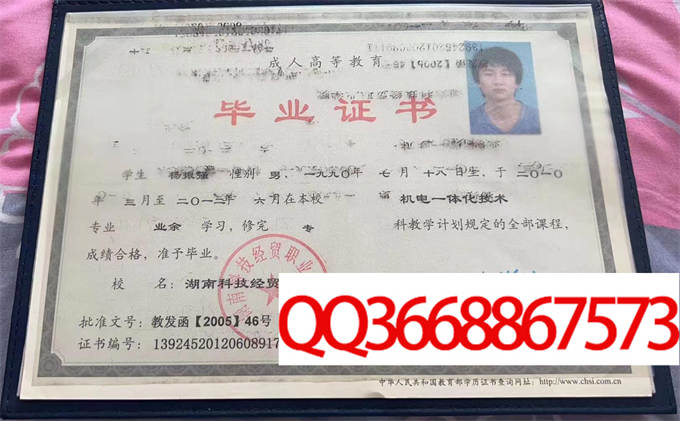 成人高等教育
毕业证书
学生 杨振强 性别 男,一九九〇年 七 月 十八 日生,于 二〇一〇
年 三 月至 二〇一二年 六 月在本校 机电一体化技术
专业 业余 学习,修完 专 科教学计划规定的全部课程,
成绩合格,准予毕业。
校 名:湖南科技经贸
批准文号:教发函【2005】46号
证书编号:13924520120608917
QQ3668867573
中华人民共和国教育部学历证书查询网址:http://www.chsi.com.cn